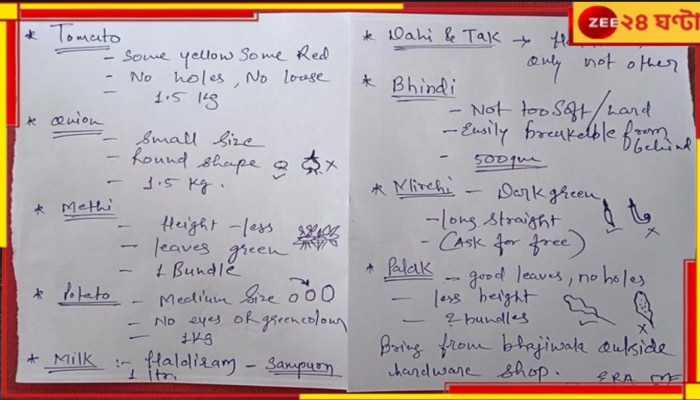 ZEE ২৪ ঘণ্টা
* Tomato
- Some yellow Some Red
- No holes, No loose
- 1.5 kg
* Onion
- Small Size
- Round shape
- 1.5 kg.
* Methi
- Height - less
- leaves green
- 1 Bundle
* Potato - Medium Size
- No eyes or green colour
- 1 kg
* Milk :- Haldiram - Sampurn
1 ltr.
* Dahi & Tak →
only not other
* Bhindi
- Not too Soft / hard
- Easily breakable from behind
- 500gm
* Mirchi - Dark green
- long straight
- (Ask for free)
* Palak - good leaves, no holes
- less height
- 2 bundles
Bring from bhajiwala outside
hardware shop.